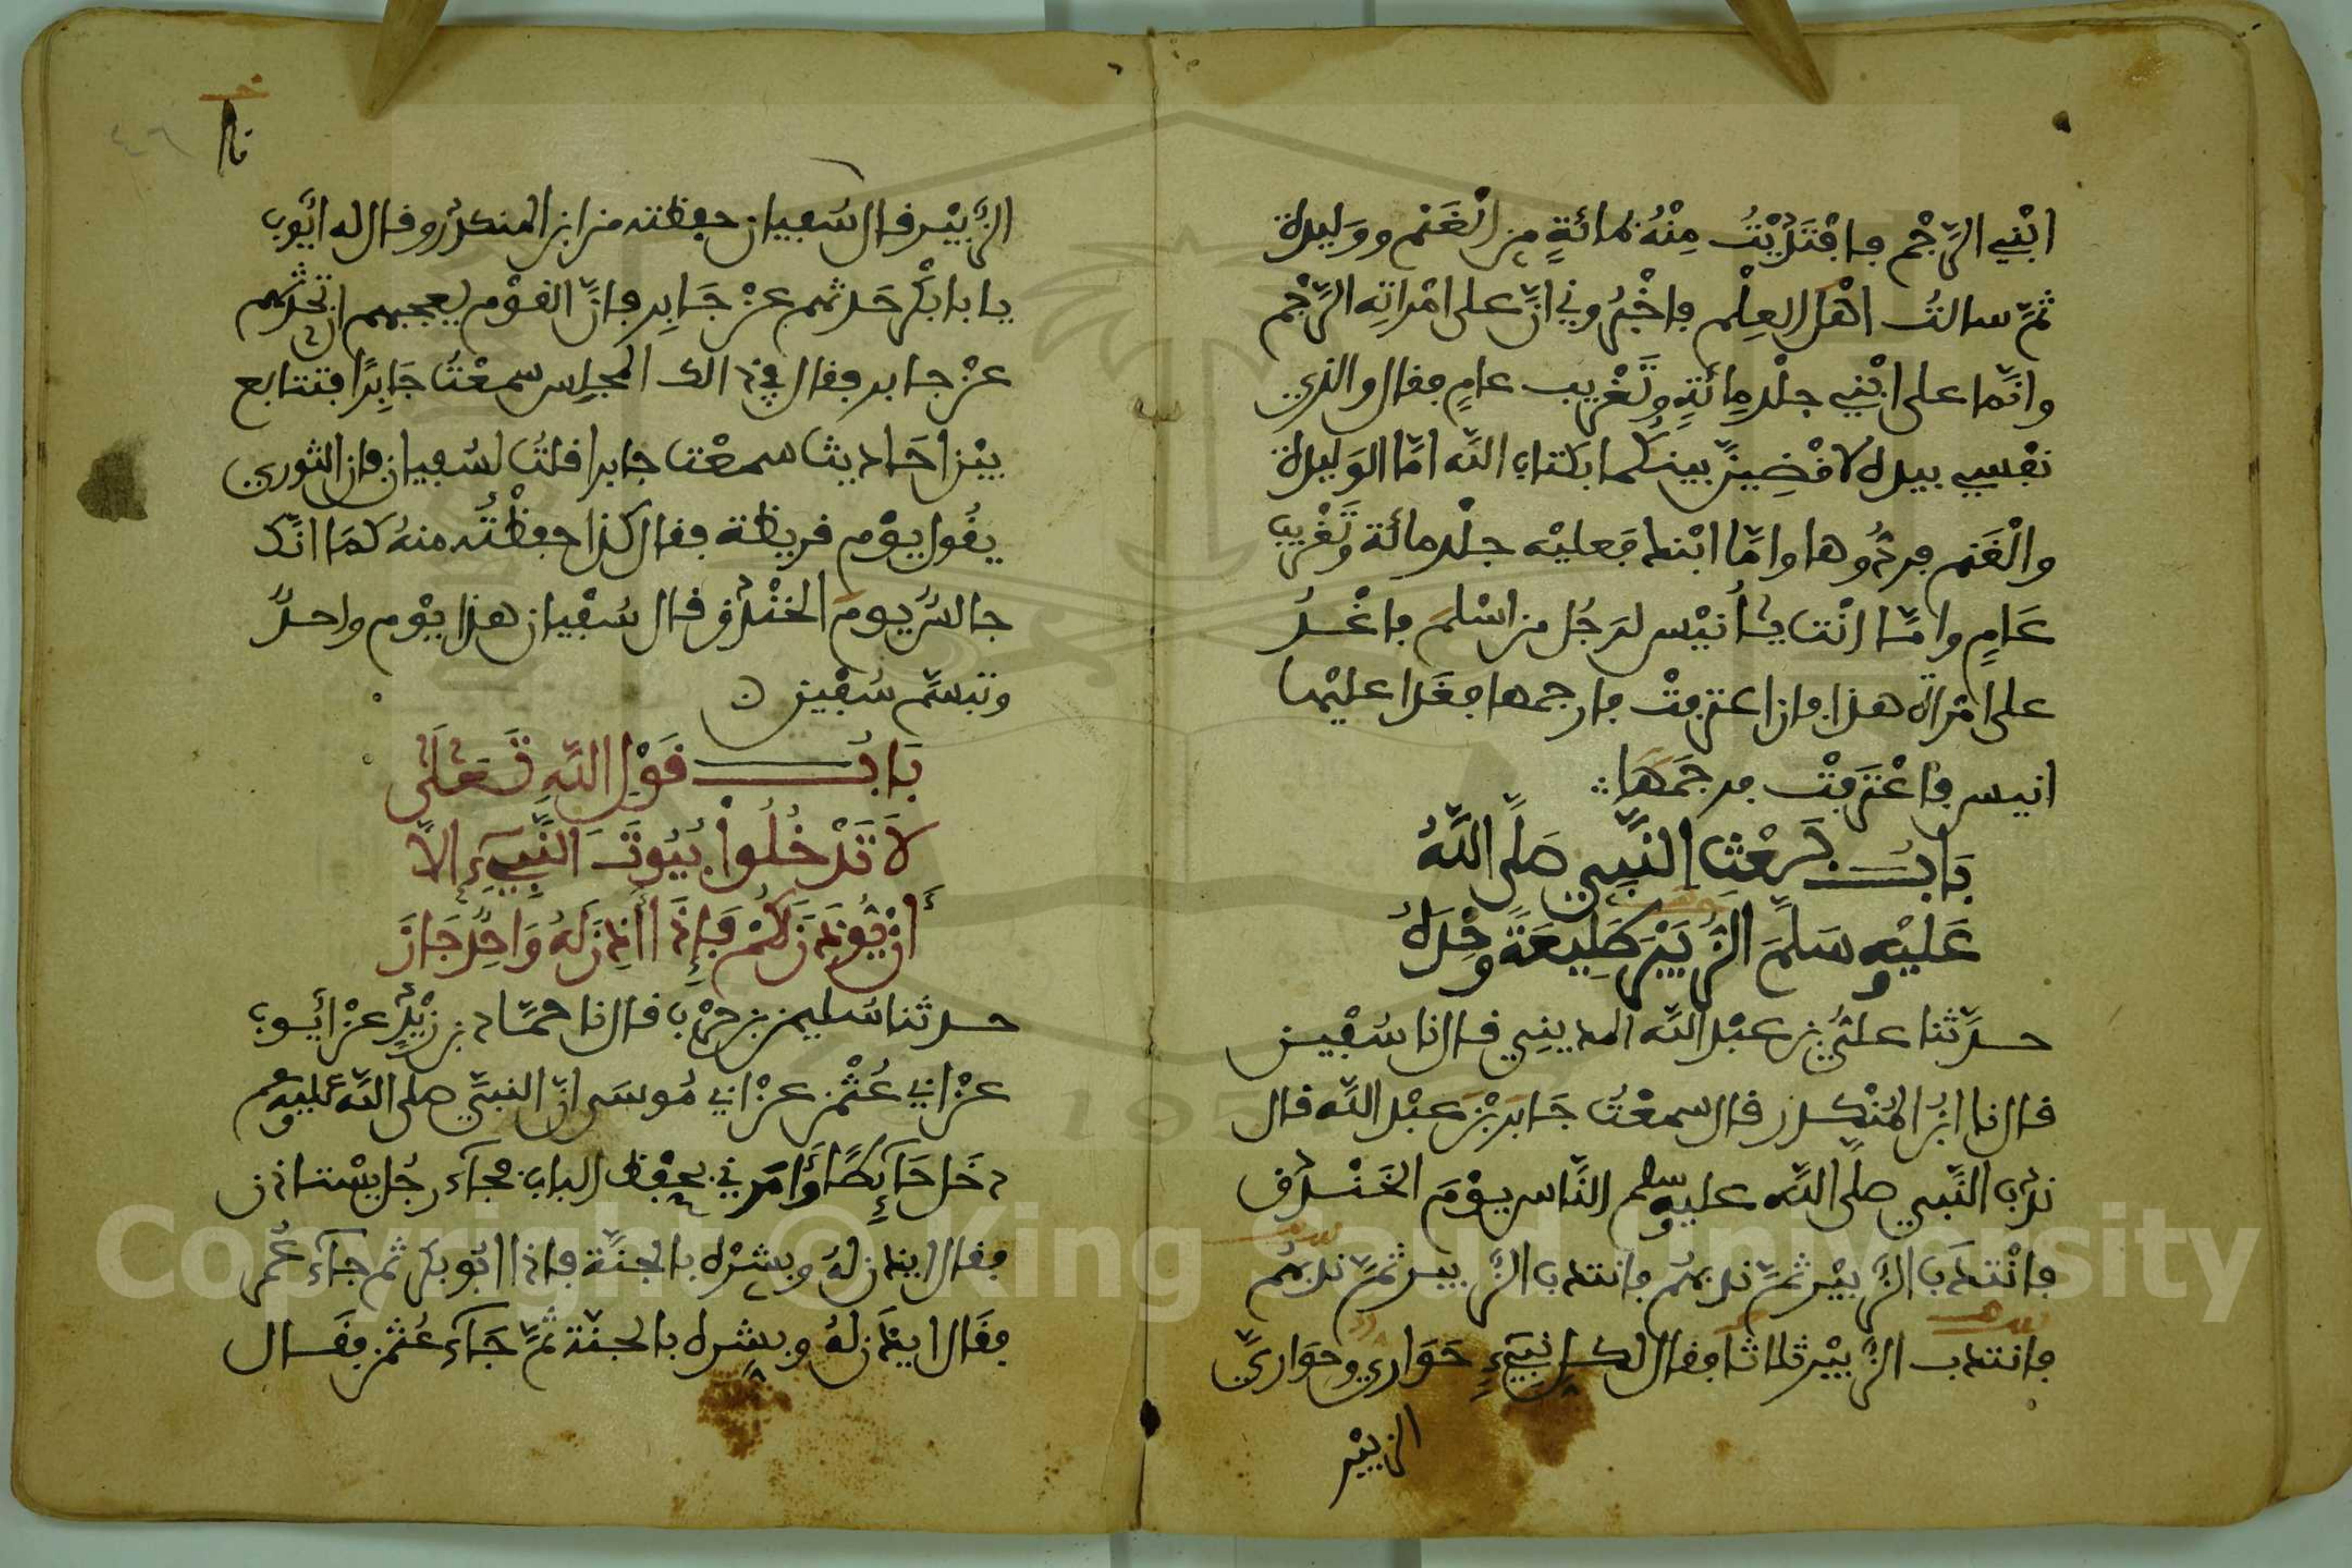 ابْنِي الرَّجْم فافْتَدَيْتُ مِنْهُ بمائةٍ مِن الْغَنَم ووَليدة
ثمّ سالتُ اهْل العِلْم فاخْبرُوني انّ على امْراتِه الرَّجْم
وانّما على ابْنِي جلْد مِائَةٍ وتَغْريب عامٍ فقال والذي
نفْسِي بيده لاقْضِينّ بينكُما بكتاب الله امّا الوَليدة
والْغَنم فردُّوها وامّا ابْنك فَعليْه جلْد مائة وتَغْريب
عَامٍ وامّا انْت يا أُنيْس لرَجُل من اسْلمَ فاغْدُ
على امْراة هذا فان اعترفتْ فارجمها فغَدا عليْها
انيس فاعْتَرفتْ فرجمَهَا
بَابُ بَعْث النَّبِي صَلَّى اللَّهُ
عَليْه وسَلَّمَ الزُّبَيْرَ طَلِيعَةً وحْدَهُ
حدّثنا عليُّ بن عبْد الله المديني قال نا سُفْين
قال نا ابنُ المُنْكدر قال سمعْتُ جَابرَ بْن عبْد الله قال
ندب النَّبي صلى الله عليه وسلم النَّاس يوْمَ الخَنْدق
فانْتدَب الزُّبيْر ثمّ ندبهُم فانتدب الزُّبير ثمّ ندبهُم
فانتدب الزُّبيْر ثلاثا فقال لكل نَبِيءٍ حَوَاري وحوَاريّ
الزبيْر
نا
٤٦
الزُّبيْر قال سُفيان حفظته من ابن المنكدر وقال له ايُّوب
يا با بكْر حَدثهم عنْ جَابِر فانّ القوْم يعجبهم ان تحدثهم
عنْ جابر فقال في ذالك المجلِس سمعْتُ جَابِرًا فتتابع
بيْن احَاديث سمعْت جابرا قلتُ لسُفيان فان الثوري
يقُول يوْم قريظة فقال كذا حفظْتُه منهُ كمَا انّك
جالسٌ يومَ الخنْدق قال سُفْيان هذا يوْم واحدٌ
وتبسّم سُفْين
بَابُ قَوْلِ اللَّهِ تَعَلَى
لَا تَدْخُلُواْ بُيُوتَ النَّبِيءِ إلاّ
أَنْ يُّوذَنَ لَكُمْ فَإِذَا أَذِنَ لَهُ وَاحِدٌ جَازَ
حدثنا سُليمن بن حرْب قال نا حمّاد بن زيْدٍ عنْ أيوب
عنْ ابي عُثْمن عنْ ابي مُوسَى انّ النبيّ صلى الله عليه وسلم
دخَل حَآئِطًا وَأمَرني بحفْظ الباب فجآء رجُل يسْتاذن
فقال ايذن لهُ وبشرْه بالجنّة فاذا ابُو بكر ثم جآء عُمر
فقَال ايذَن لهُ وبشره بالجنّة ثمّ جَآء عُثمن فقَال